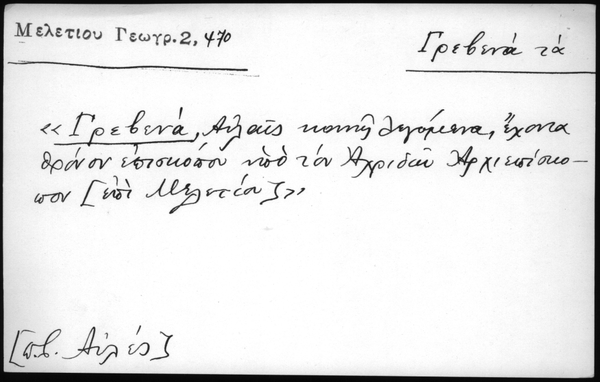 Μελετίου Γεωγρ. 2, 470
Γρεβενά τά
« Γρεβενά, Αὐλαῖς κοινῆ λεγόμενα, ἔχοντα
θρόνον ἐπισκόπου ὑπὸ τὸν Ἀχριδῶν Ἀρχιεπίσκο-
πον [ἐπὶ Μελετίου]»
[π.β. Αὐλές]